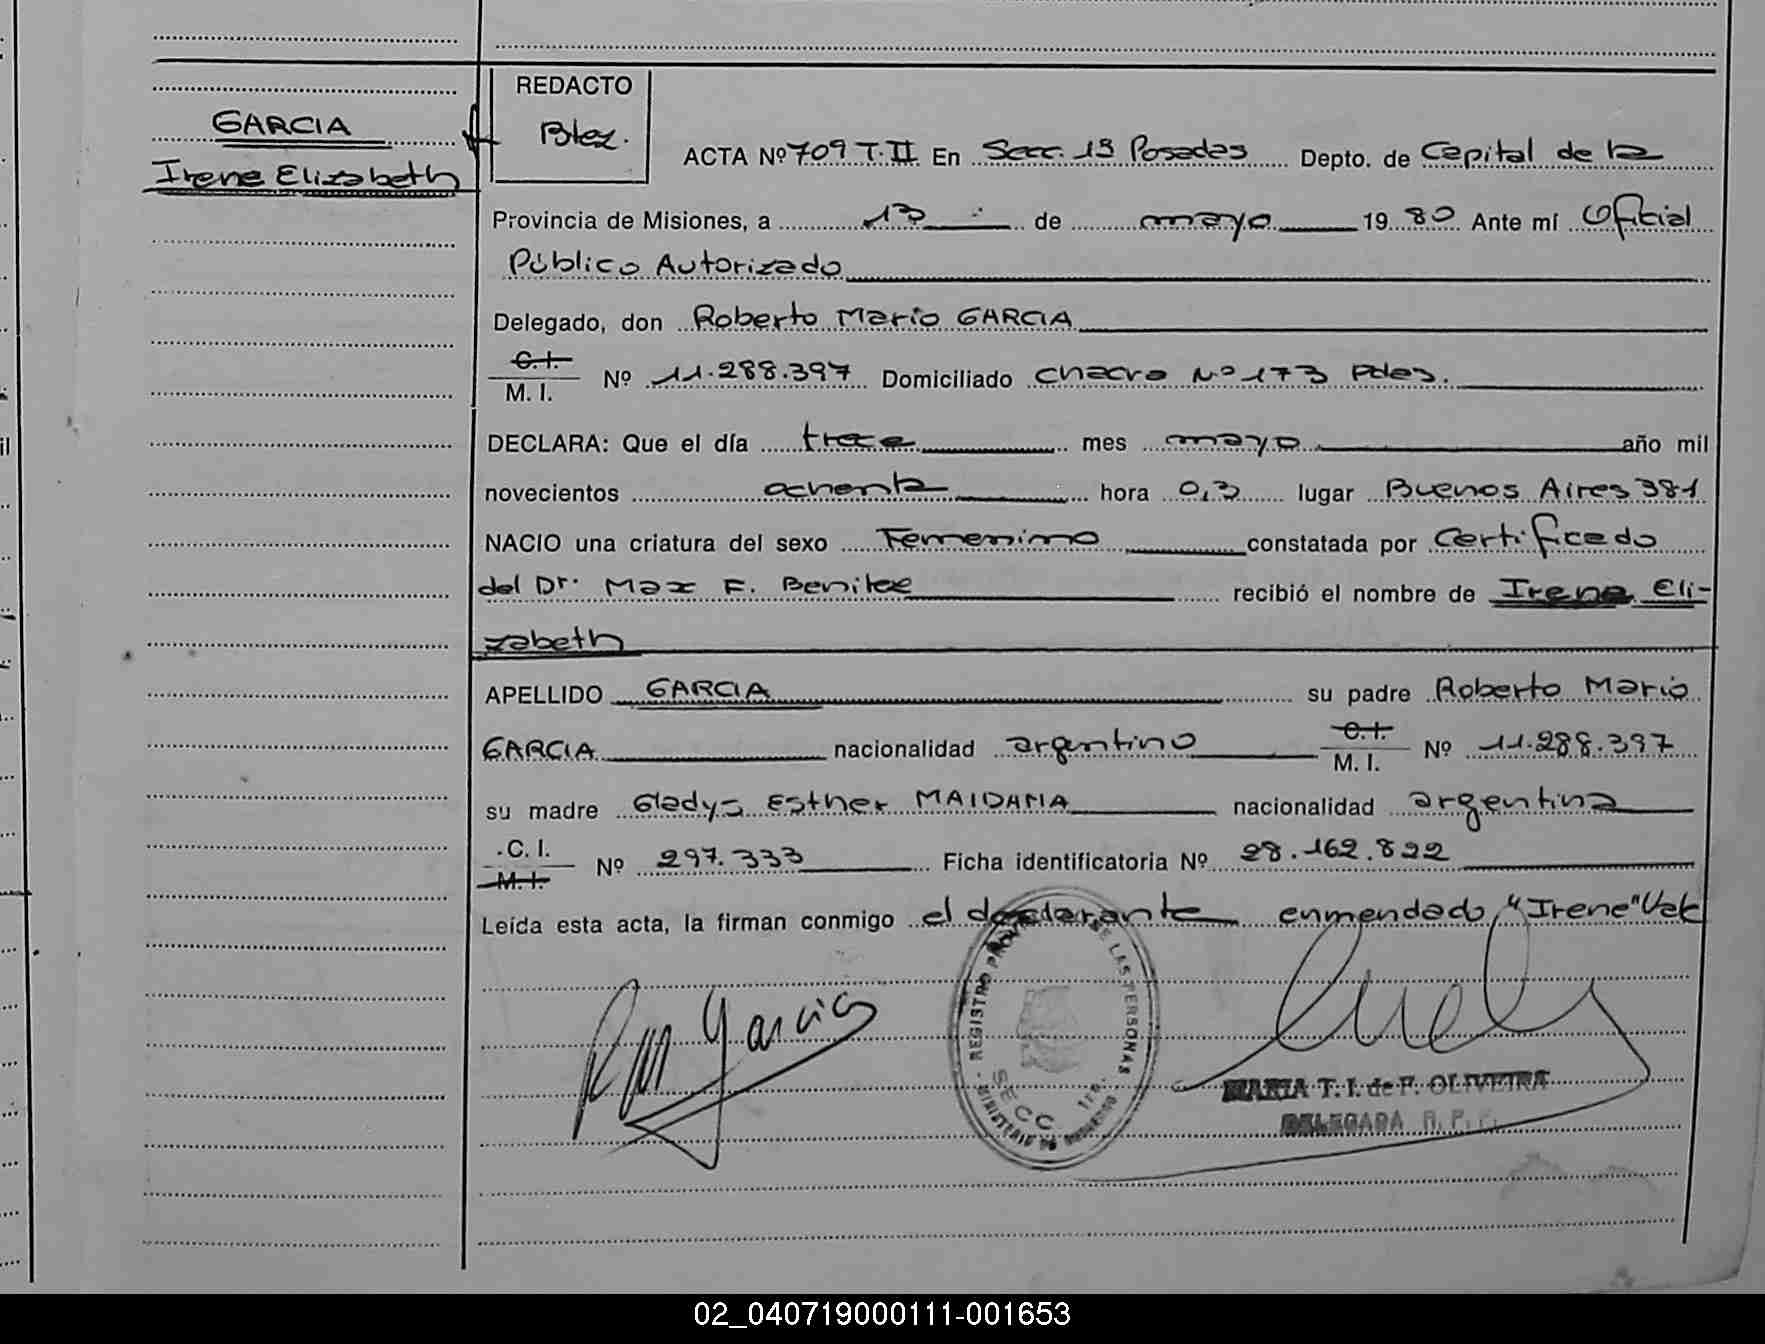 GARCIA
Irene Elizabeth
REDACTO
Btez.
ACTA Nº 709 T. II En Secc. 1ª Posadas Depto. de Capital de la
Provincia de Misiones, a 13 de mayo 19 80 Ante mí Oficial
Público Autorizado
Delegado, don Roberto Mario GARCIA
C. I.
M. I. Nº 11.288.397 Domiciliado chacra Nº 173 Pdas.
DECLARA: Que el día trece mes mayo año mil
novecientos ochenta hora 0,3 lugar Buenos Aires 381
NACIO una criatura del sexo Femenino constatada por Certificado
del Dr. Max F. Benitez recibió el nombre de Irene Eli-
zabeth
APELLIDO GARCIA su padre Roberto Mario
GARCIA nacionalidad argentino C. I. M. I. Nº 11.288.397
su madre Gladys Esther MAIDANA nacionalidad argentina
C. I.
M. I. Nº 297.333 Ficha identificatoria Nº 28.162.822
Leída esta acta, la firman conmigo el declarante enmendado "Irene" Vale
RM Garcia
REGISTRO PROV DE LAS PERSONAS
SECC 1ra.
MINISTERIO DE
MARIA T. I. de F. OLIVEIRA
DELEGADA R. P. P.
il
02_040719000111-001653